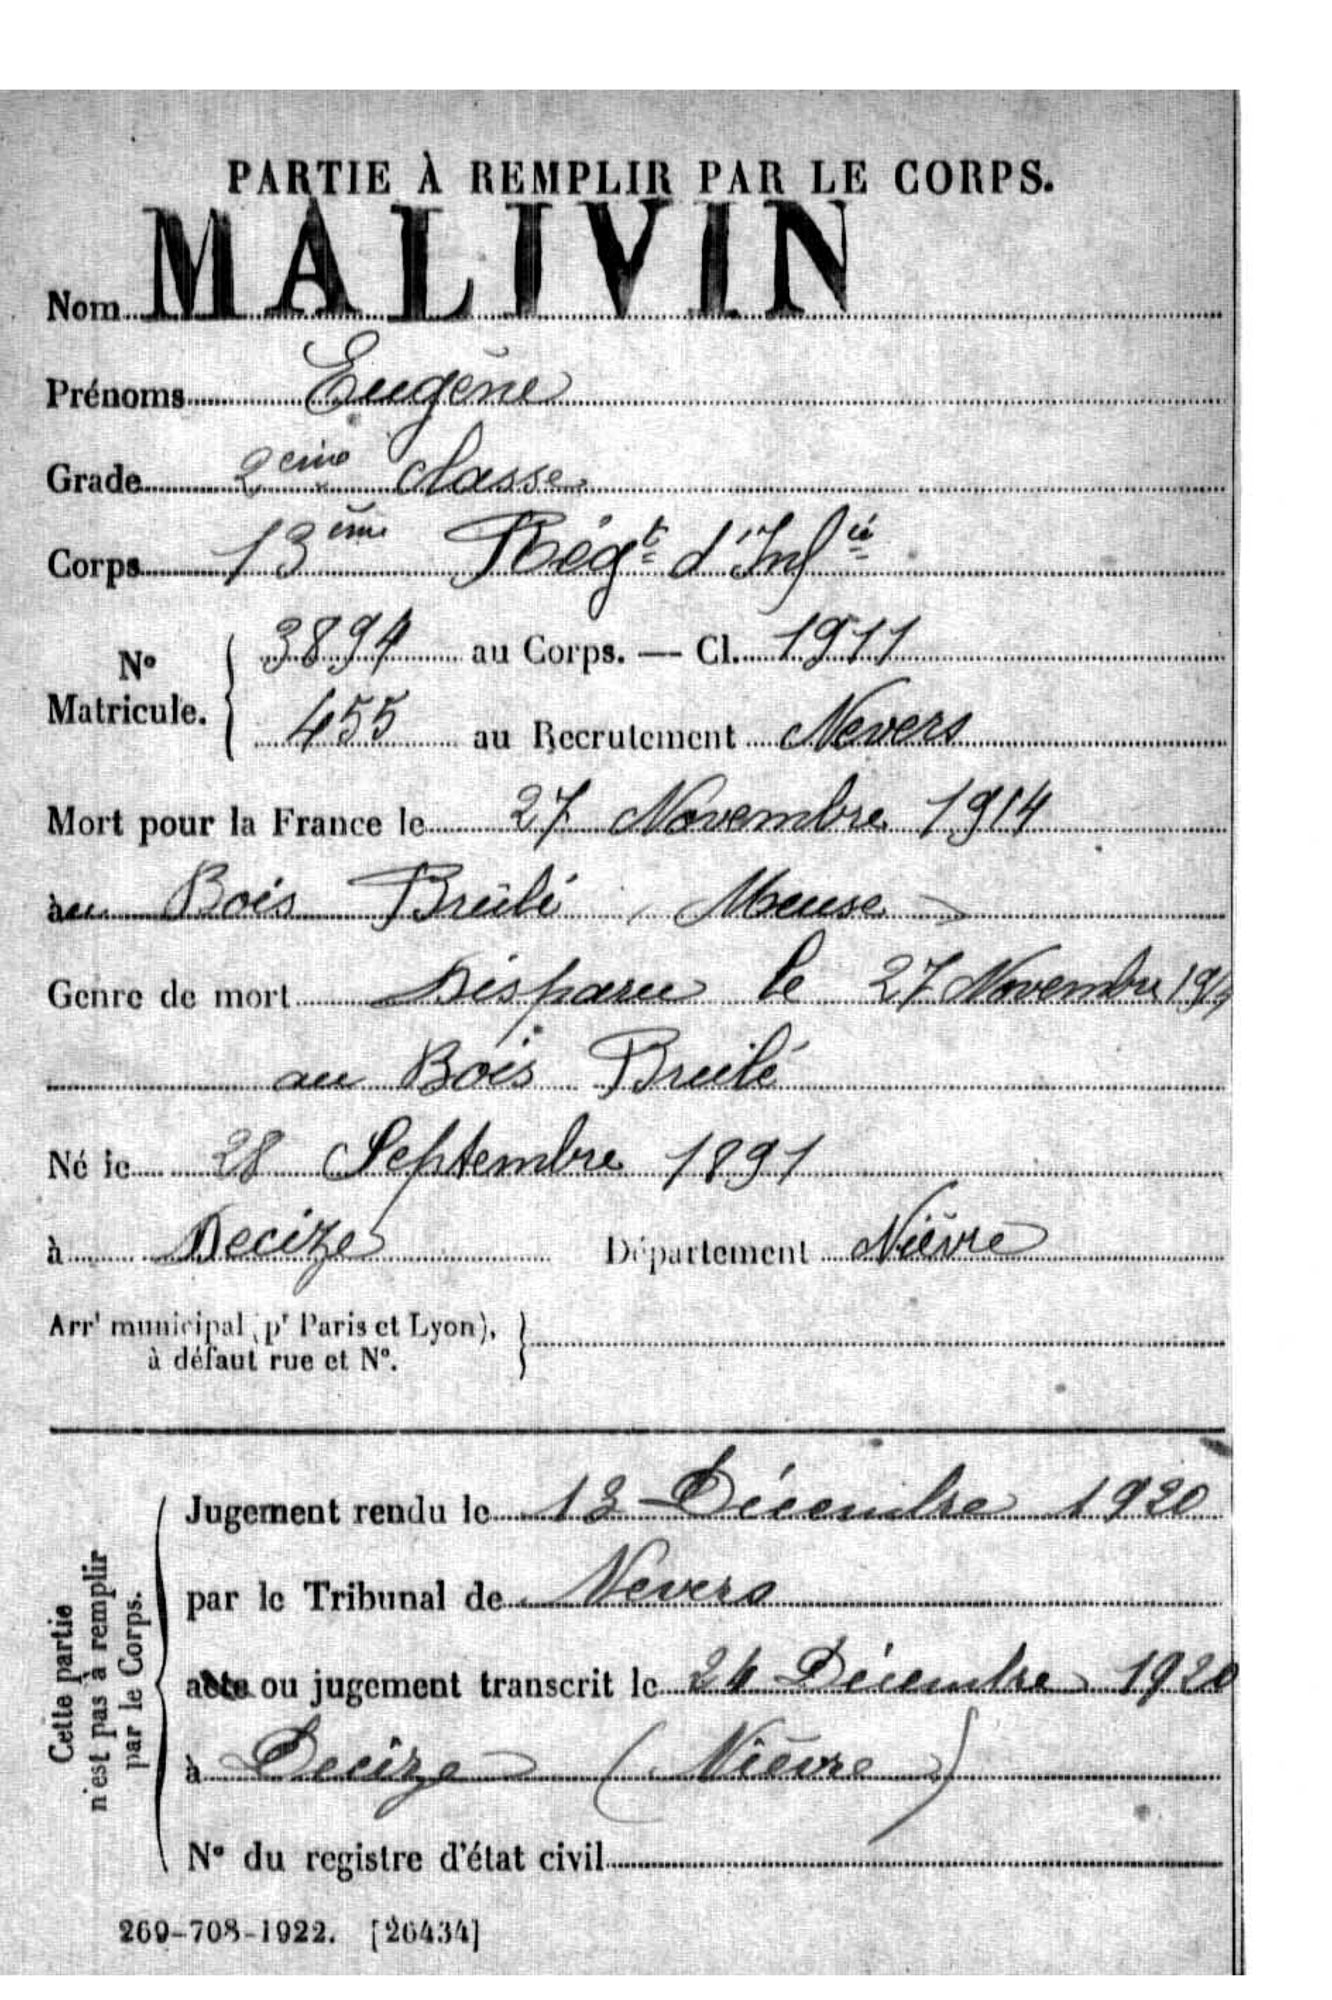 PARTIE À REMPLIR PAR LE CORPS.
Nom MALIVIN
Prénoms Eugène
Grade 2ème classe
Corps 13ème Régt d'Infie
No Matricule. { 3894 au Corps. — Cl. 1911
455 au Recrutement Nevers
Mort pour la France le 27 Novembre 1914
au Bois Brûlé (Meuse)
Genre de mort Disparu le 27 Novembre 1914
au Bois Brulé
Né le 28 Septembre 1891
à Decize Département Nièvre
Arrt municipal (pr Paris et Lyon), à défaut rue et No. }
Cette partie n'est pas à remplir par le Corps. {
Jugement rendu le 13 Décembre 1920
par le Tribunal de Nevers
acte ou jugement transcrit le 24 Décembre 1920
à Decize (Nièvre)
No du registre d'état civil
269-708-1922. [26434]